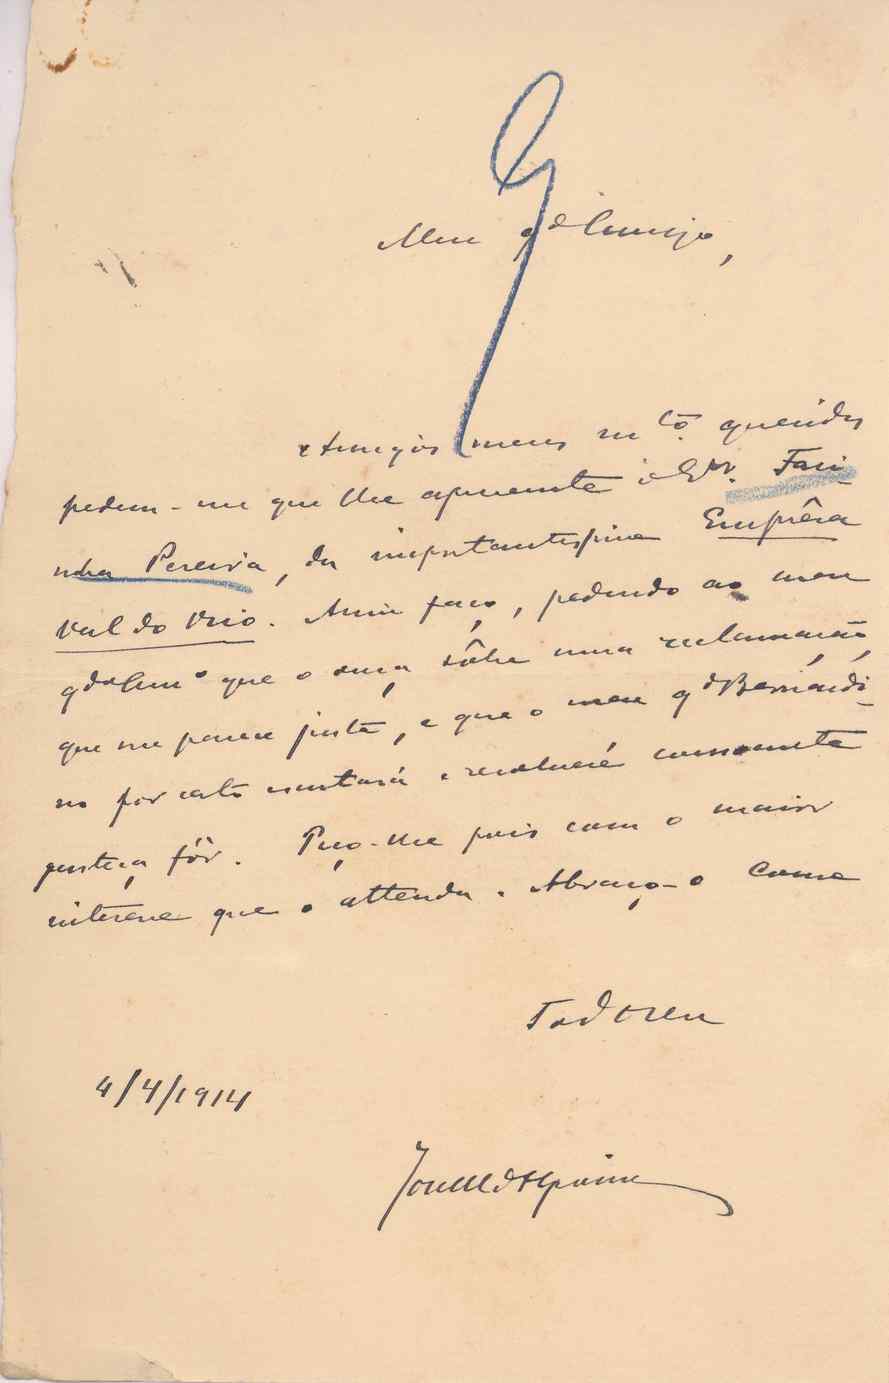 Meu gde Amigo,
Amigos meus mto. queridos
pedem-me que lhe apresente o Snr. Fari-
nha Pereira, da importantissima Emprêsa
Val do Rio. Assim faço, pedendo ao meu
gde Amo que o ouça sôbre uma reclamação,
que me parece justa, e que o meu gde Bernardi-
no por certo escutará e resolverá consoante
justiça fôr. Peço-lhe pois com o maior
interesse que o attenda. Abraço-o como
Todo seu
4/4/1914